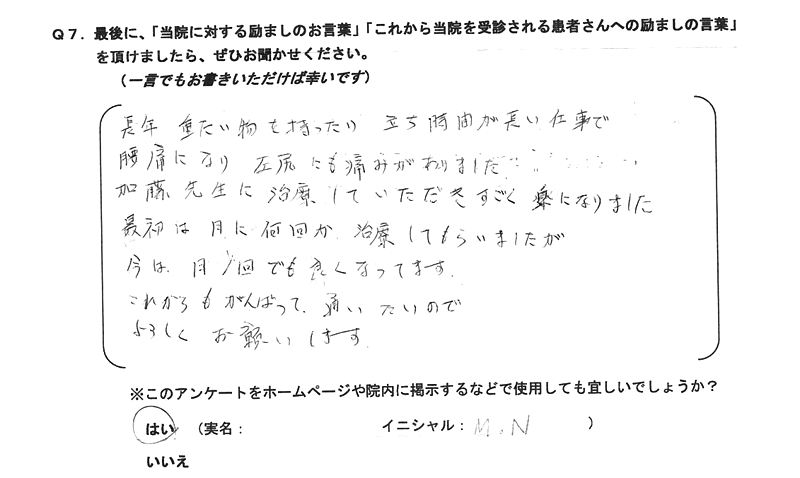 Q7. 最後に、「当院に対する励ましのお言葉」「これから当院を受診される患者さんへの励ましの言葉」
を頂けましたら、ぜひお聞かせください。
(一言でもお書きいただけば幸いです)
長年 重たい物を持ったり 立ち時間が長い仕事で
腰痛になり 左尻にも痛みがありました
加藤先生に治療していただきすごく楽になりました
最初は月に何回か治療してもらいましたが
今は月1回でも良くなってます.
これからもがんばって、通いたいので
よろしくお願いします.
※このアンケートをホームページや院内に掲示するなどで使用しても宜しいでしょうか?
はい (実名: イニシャル: M.N )
いいえ